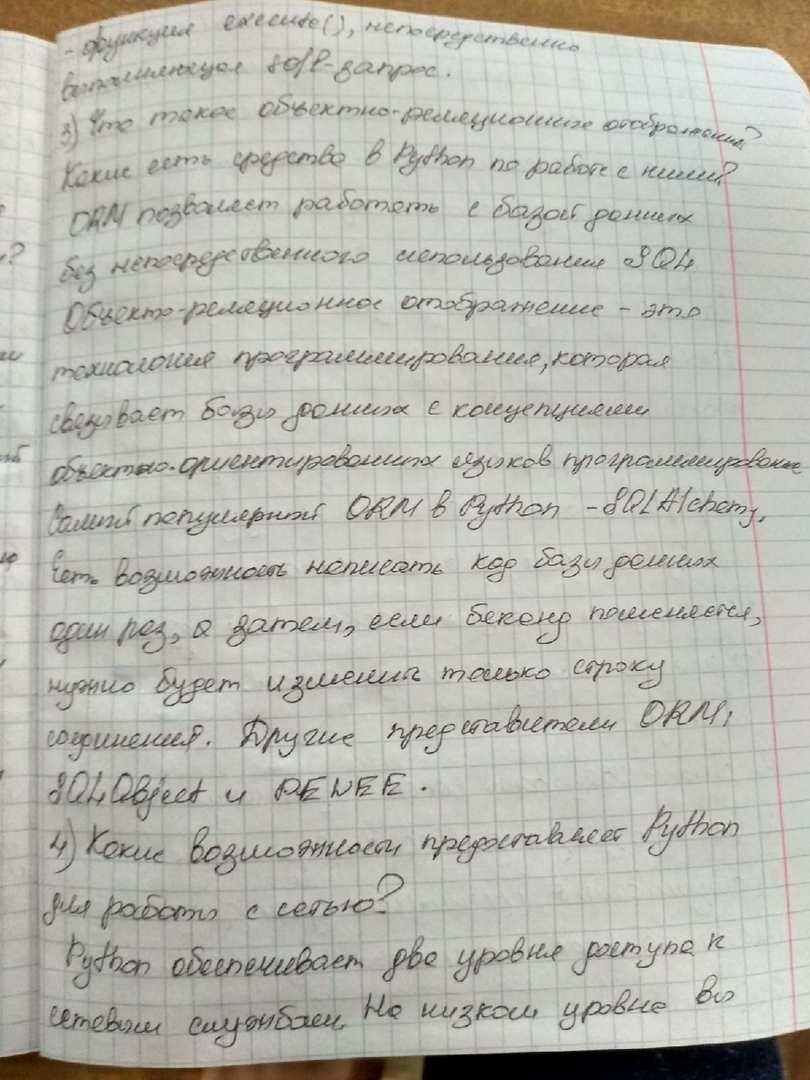 - функция execute(), непосредственно
выполняющая sql-запрос.
3) Что такое объектно-реляционные отображения?
Какие есть средства в Python по работе с ними?
ORM позволяет работать с базой данных
без непосредственного использования SQL
Объекто-реляционное отображение - это
технология программирования, которая
связывает базы данных с концепциями
объектно-ориентированных языков программирования
Самый популярный ORM в Python - SQLAlchemy,
Есть возможность написать код базы данных
один раз, а затем, если бекенд поменяется,
нужно будет изменить только строку
соединения. Другие представители ORM:
SQLObject и PEWEE.
4) Какие возможности предоставляет Python
для работы с сетью?
Python обеспечивает два уровня доступа к
сетевым службам. На низком уровне вы